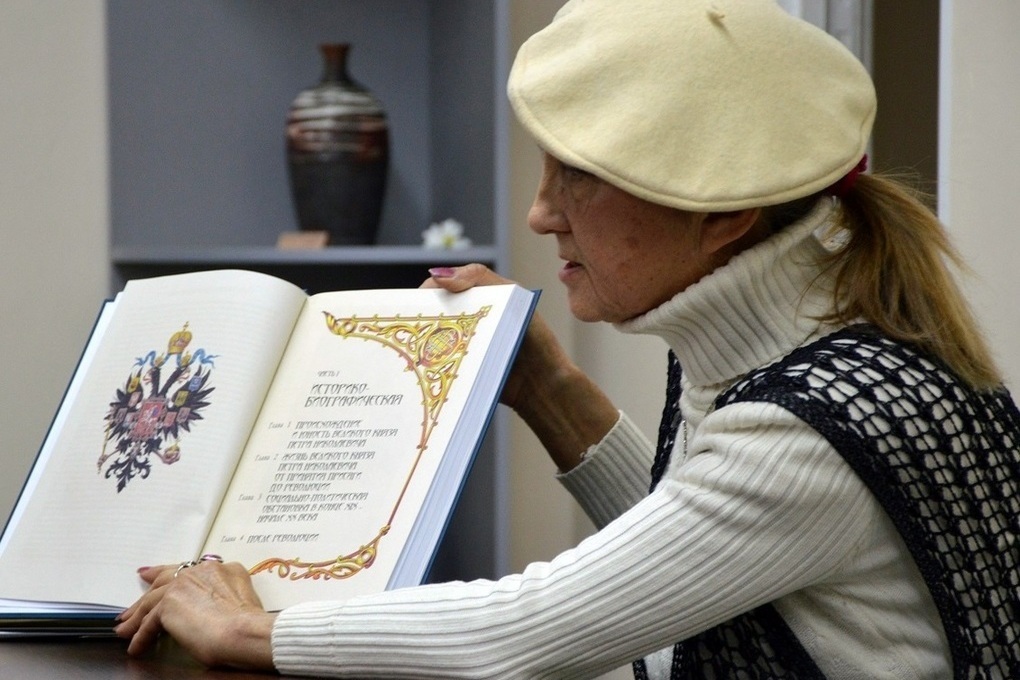 ЧАСТЬ I
ИСТОРИКО-
БИОГРАФИЧЕСКАЯ
Глава 1 ПРОИСХОЖДЕНИЕ
И ЮНОСТЬ ВЕЛИКОГО КНЯЗЯ
ПЕТРА НИКОЛАЕВИЧА
Глава 2 ЖИЗНЬ ВЕЛИКОГО КНЯЗЯ
ПЕТРА НИКОЛАЕВИЧА
ОТ ПРИНЯТИЯ ПРИСЯГИ
ДО РЕВОЛЮЦИИ
Глава 3 СОЦИАЛЬНО-ПОЛИТИЧЕСКАЯ
ОБСТАНОВКА В КОНЦЕ XIX -
НАЧАЛЕ XX ВЕКА
Глава 4 ПОСЛЕ РЕВОЛЮЦИИ